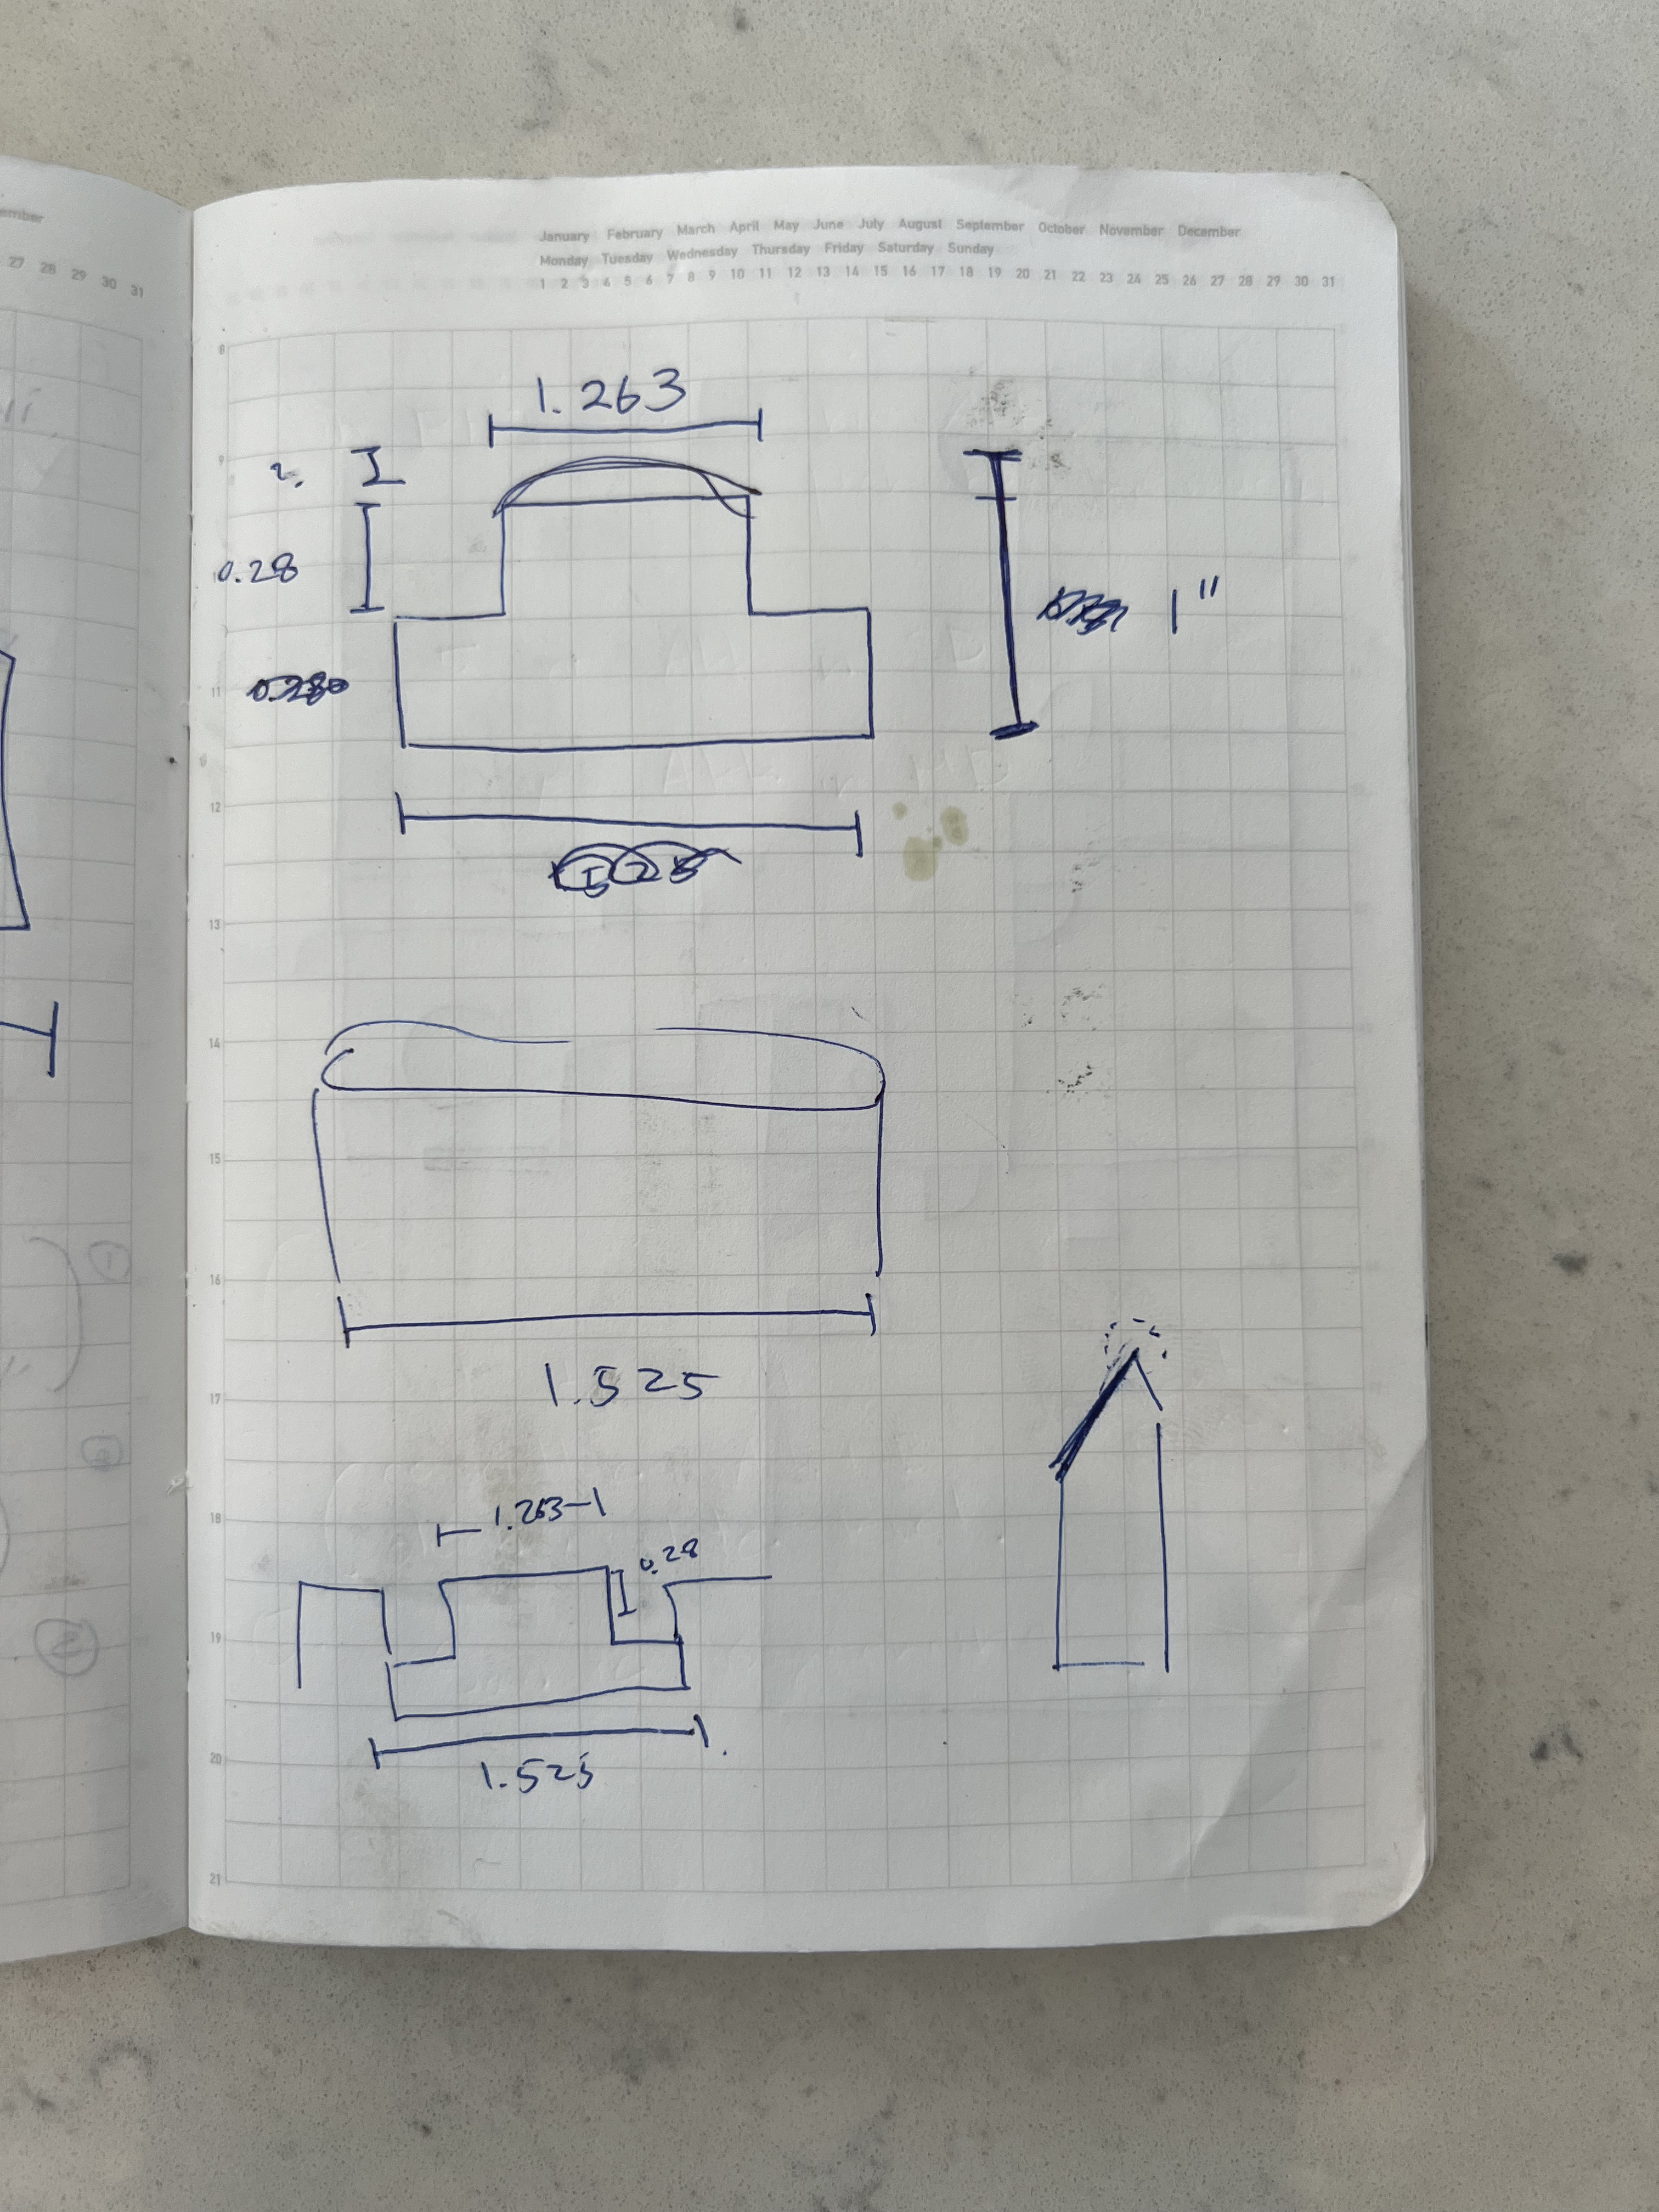 ember
27 28 29 30 31
January February March April May June July August September October November December
Monday Tuesday Wednesday Thursday Friday Saturday Sunday
1 2 3 4 5 6 7 8 9 10 11 12 13 14 15 16 17 18 19 20 21 22 23 24 25 26 27 28 29 30 31
8
1.263
9
0.28
1"
11
12
13
14
15
16
1.525
17
1.263
18
0.28
19
1.525
20
21